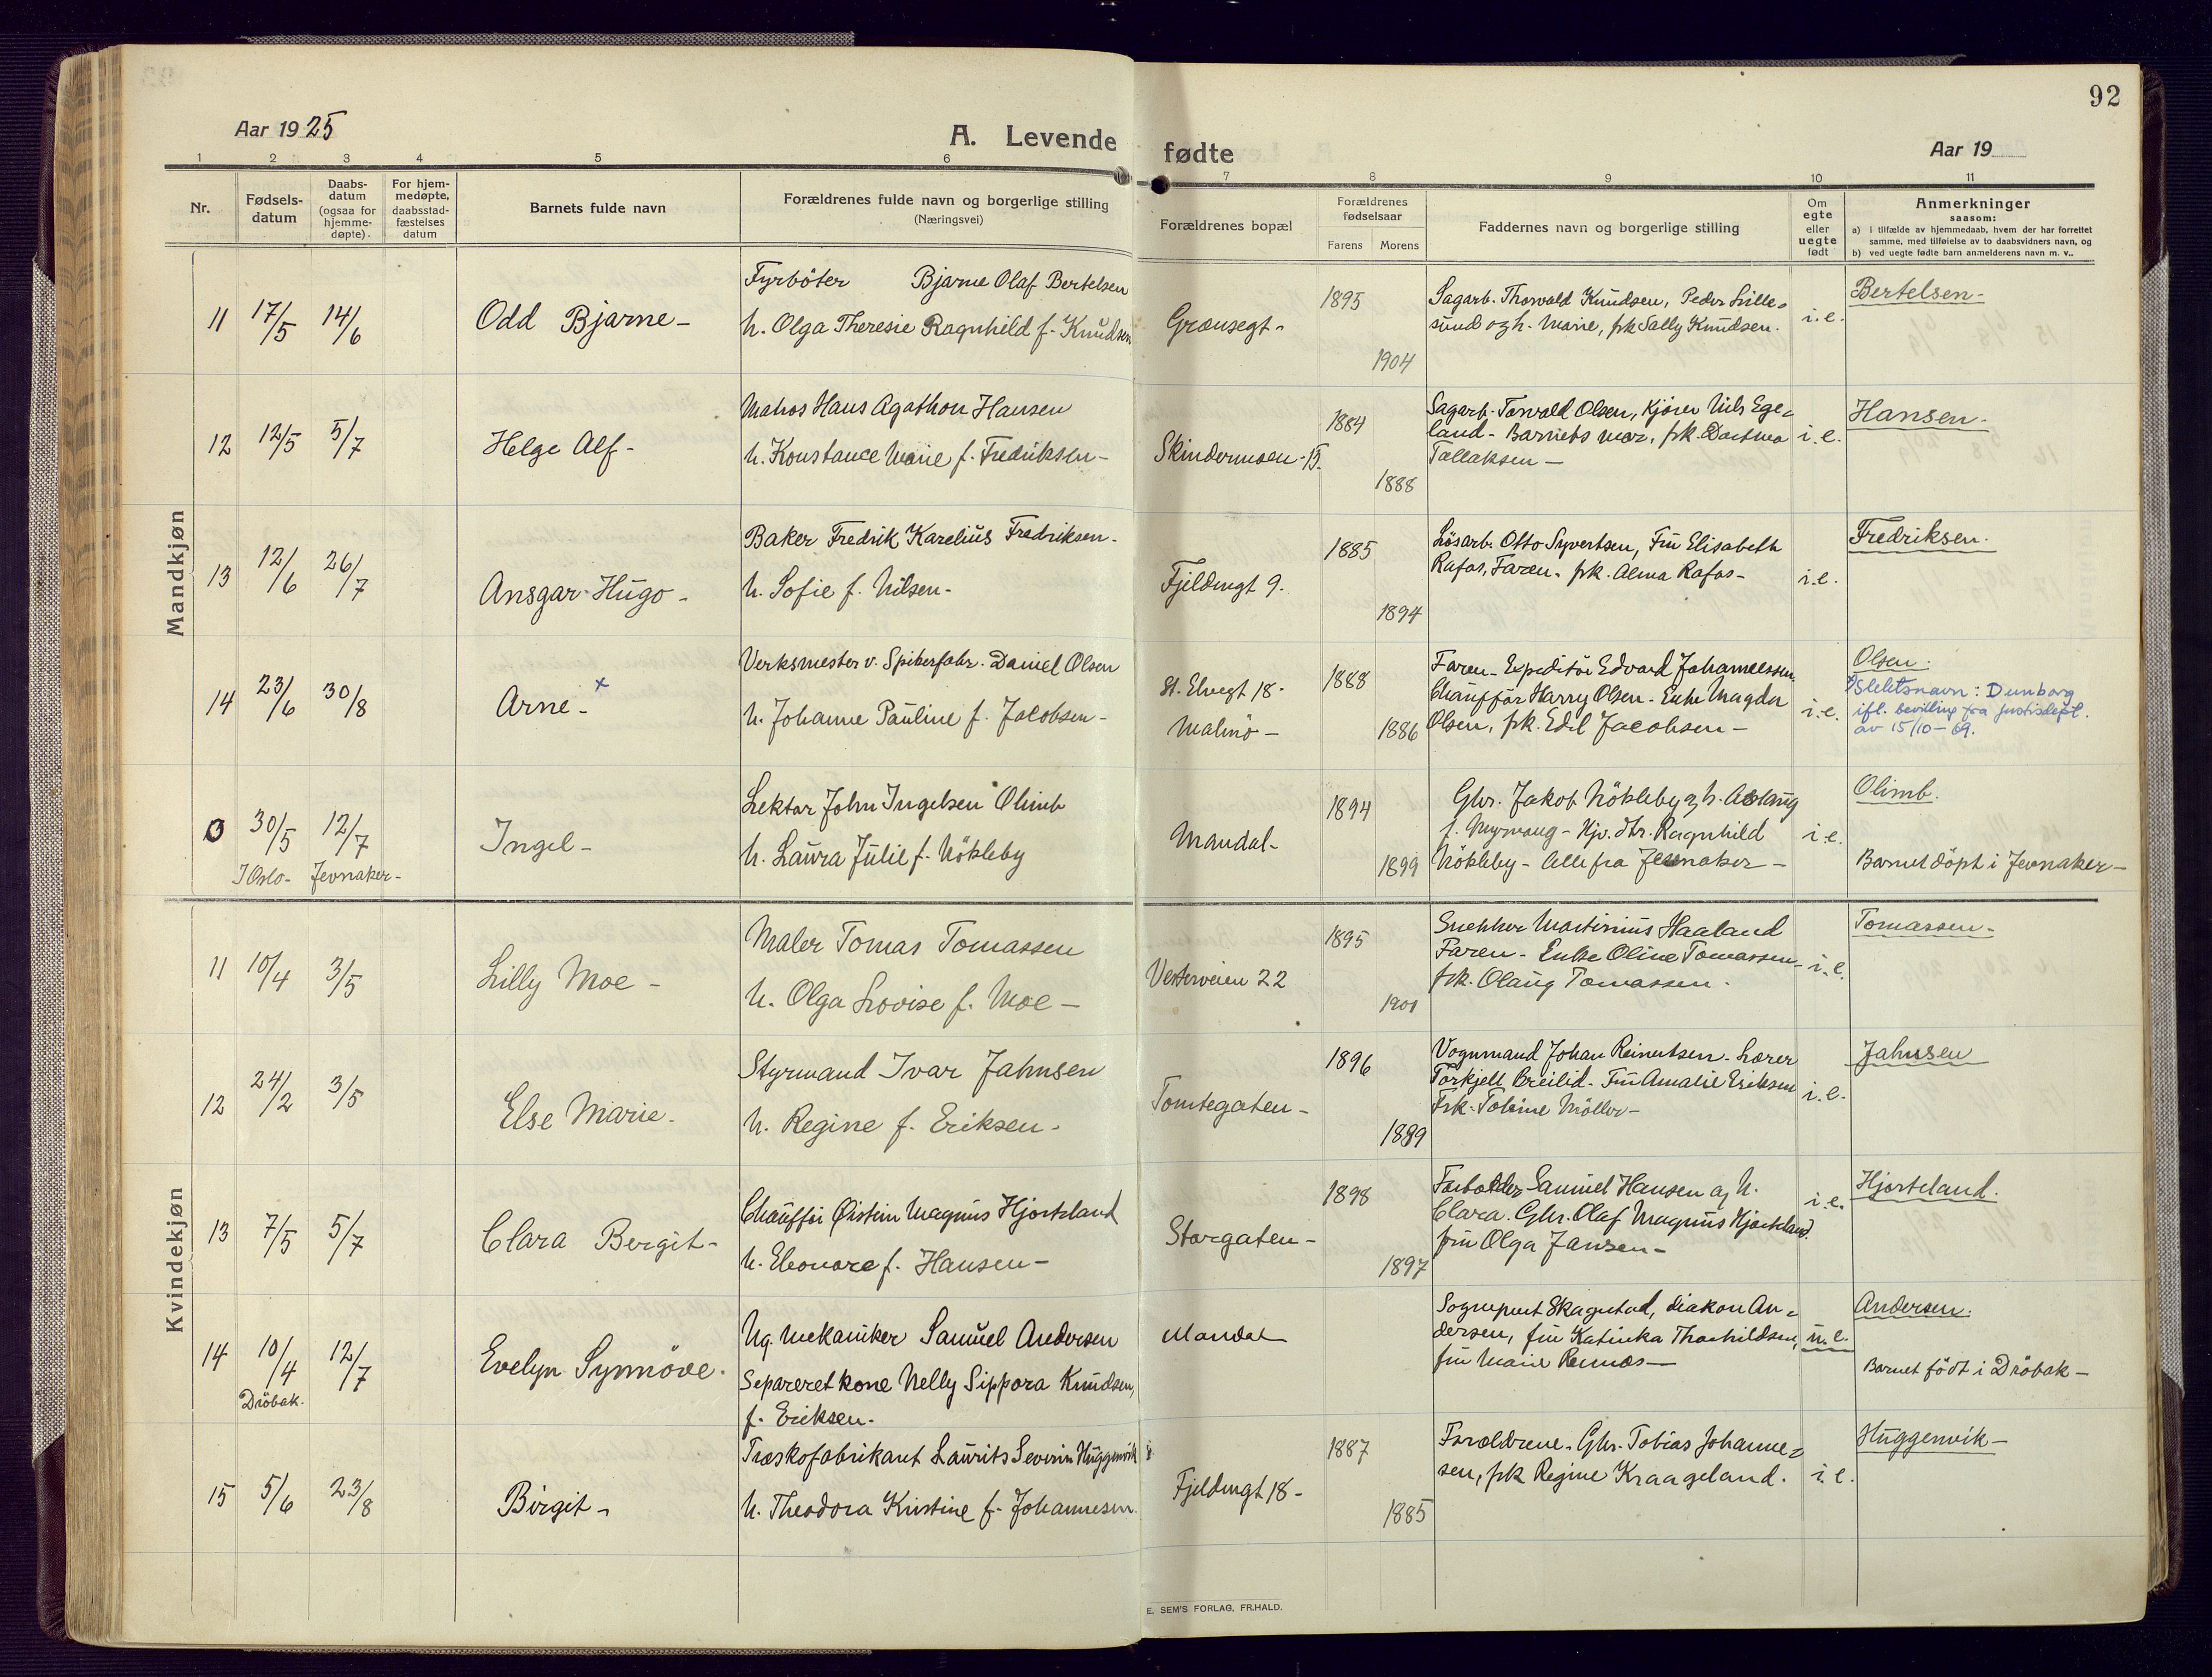 92
Aar 1925
A. Levende fødte
Aar 19
1 2 3 4 5 6 7 8 9 10 11
Nr.
Fødsels-
datum
Daabs-
datum
(ogsaa for
hjemme-
døpte).
For hjem-
medøpte,
daabsstad-
fæstelses
datum
Barnets fulde navn
Forældrenes fulde navn og borgerlige stilling
(Næringsvei)
Forældrenes bopæl
Forældrenes
fødselsaar
Farens Morens
Faddernes navn og borgerlige stilling
Om
egte
eller
uegte
født
Anmerkninger
saasom:
a) i tilfælde av hjemmedaab, hvem der har forrettet
samme, med tilføielse av to daabsvidners navn, og
b) ved uegte fødte barn anmelderens navn m. v..
Mandkjøn
11 17/5 14/6
Odd Bjarne -
Fyrböter Bjarne Olaf Bertelsen
h. Olga Theresie Ragnhild f. Knudsen
Grænsegt -
1895
1904
Sagarb. Thorvald Knudsen, Peder Lille-
sund og h. Marie, frk Sally Knudsen.
i.e.
Bertelsen -
12 12/5 5/7
Helge Alf -
Matros Hans Agathon Hansen
h. Konstance Marie f. Fredriksen -
Skindermoen 15.
1884
1888
Sagarb. Torvald Olsen, Kjører Nils Ege-
land - Barnets mor, frk.
Tallaksen -
i.e.
Hansen -
13 12/6 26/7
Ansgar Hugo -
Baker Fredrik Karelius Fredriksen -
h. Sofie f. Nilsen -
Fjeldnugt 9.
1885
1894
Løsarb. Otto Syvertsen, Fru Elisabeth
Rafos, Faren - frk. Alma Rafos -
i.e.
Fredriksen.
14 23/6 30/8
Arne - x
Verksmester v. Spikerfabr. Daniel Olsen
h. Johanne Pauline f. Jacobsen -
St. Elvegt 18 -
Malmö -
1888
1886
Faren - Expeditör Edvard Johannessen
Chauffør Harry Olsen - Enke Magda
Olsen, frk. Edel Jacobsen -
i.e.
Olsen.
Slektsnavn: Dunborg
ifl. bevilling fra Justisdept.
av 15/10-69.
0 30/5 12/7
I Oslo - Jevnaker -
Ingel -
Lektor John Ingelsen Olimb
h. Laura Julie f. Nökleby
Mandal -
1894
1899
Gbr. Jakob Nökleby og h. Aslaug
f. Myrvang - Hjv. dtr. Ragnhild
Nökleby - Alle fra Jevnaker -
i.e.
Olimb.
Barnet döpt i Jevnaker -
Kvindekjøn
11 10/4 3/5
Lilly Moe -
Maler Tomas Tomassen
h. Olga Lovise f. Moe -
Vesterveien 22
1895
1901
Snekker Martinius Haaland
Faren - Enke Oline Tomassen -
frk. Olaug Tomassen.
i.e.
Tomassen -
12 24/2 3/5
Else Marie -
Styrmand Ivar Jahnsen
h. Regine f. Eriksen -
Tomtegaten -
1896
1899
Vognmand Johan Reinertsen - Lærer
Torkjell Breilid - Fru Amalie Eriksen
Frk. Tobine Möller -
i.e.
Jahnsen
13 7/5 5/7
Clara Bergit -
Chauffør Øistein Magnus Hjorteland
h. Eleonore f. Hansen -
Storgaten -
1898
1897
Samuel Hansen og h.
Clara. Gbr. Olaf Magnus Hjorteland.
fru Olga Jansen -
i.e.
Hjorteland.
14 10/4 12/7
Dröbak.
Evelyn Synnöve.
Ug. Mekaniker Samuel Andersen
Separeret kone Nelly Sippora Knudsen,
f. Eriksen -
Mandal
Sogneprest Skagestad, diakon An-
dersen, fru Katinka Thorkildsen,
fru Marie
u.e.
Andersen.
Barnet födt i Dröbak -
15 5/6 23/8
Birgit -
Træskofabrikant Laurits Severin Huggenvik
h. Theodora Kristine f. Johannesen
Fjeldnugt 18 -
1887
1885
Forældrene. Gbr. Tobias Johanne-
sen, frk Regine Kraageland.
i.e.
Huggenvik -
E. SEM'S FORLAG, FR.HALD.